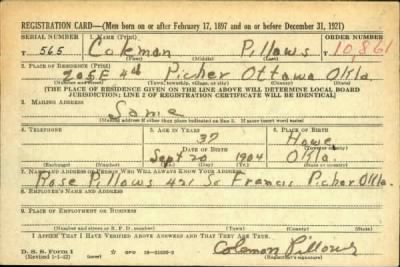 REGISTRATION CARD—(Men born on or after February 17, 1897 and on or before December 31, 1921)
SERIAL NUMBER 1. NAME (Print) ORDER NUMBER
T 565 Coleman Pillows T 10,861
(First) (Middle) (Last)
2. PLACE OF RESIDENCE (Print)
205 E 4th Picher Ottawa Okla
(Number and street) (Town, township, village, or city) (County) (State)
[THE PLACE OF RESIDENCE GIVEN ON THE LINE ABOVE WILL DETERMINE LOCAL BOARD
JURISDICTION; LINE 2 OF REGISTRATION CERTIFICATE WILL BE IDENTICAL]
3. MAILING ADDRESS
Same
[Mailing address if other than place indicated on line 2. If same insert word same]
4. TELEPHONE 5. AGE IN YEARS 6. PLACE OF BIRTH
37 Howe
DATE OF BIRTH (Town or county)
Sept 20 1904 Okla.
(Exchange) (Number) (Mo.) (Day) (Yr.) (State or country)
7. NAME AND ADDRESS OF PERSON WHO WILL ALWAYS KNOW YOUR ADDRESS
Rose Pillows 421 So Francis Picher Okla.
8. EMPLOYER'S NAME AND ADDRESS
9. PLACE OF EMPLOYMENT OR BUSINESS
(Number and street or R. F. D. number) (Town) (County) (State)
I AFFIRM THAT I HAVE VERIFIED ABOVE ANSWERS AND THAT THEY ARE TRUE.
D. S. S. Form 1
(Revised 1-1-42) (over) GPO 16—21630-2
Coleman Pillows
(Registrant's signature)